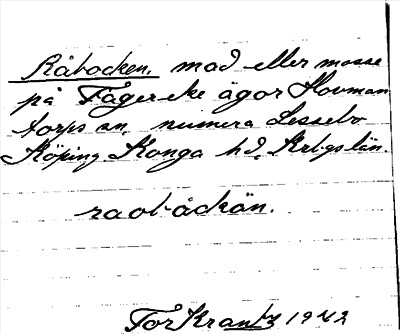 Råbocken. mad eller mosse
på Fågereke ägor Hovman
torps sn, numera Lessebo
Köping Konga hd, Krbgs län.
raobåckän.
Tor Krantz 1942